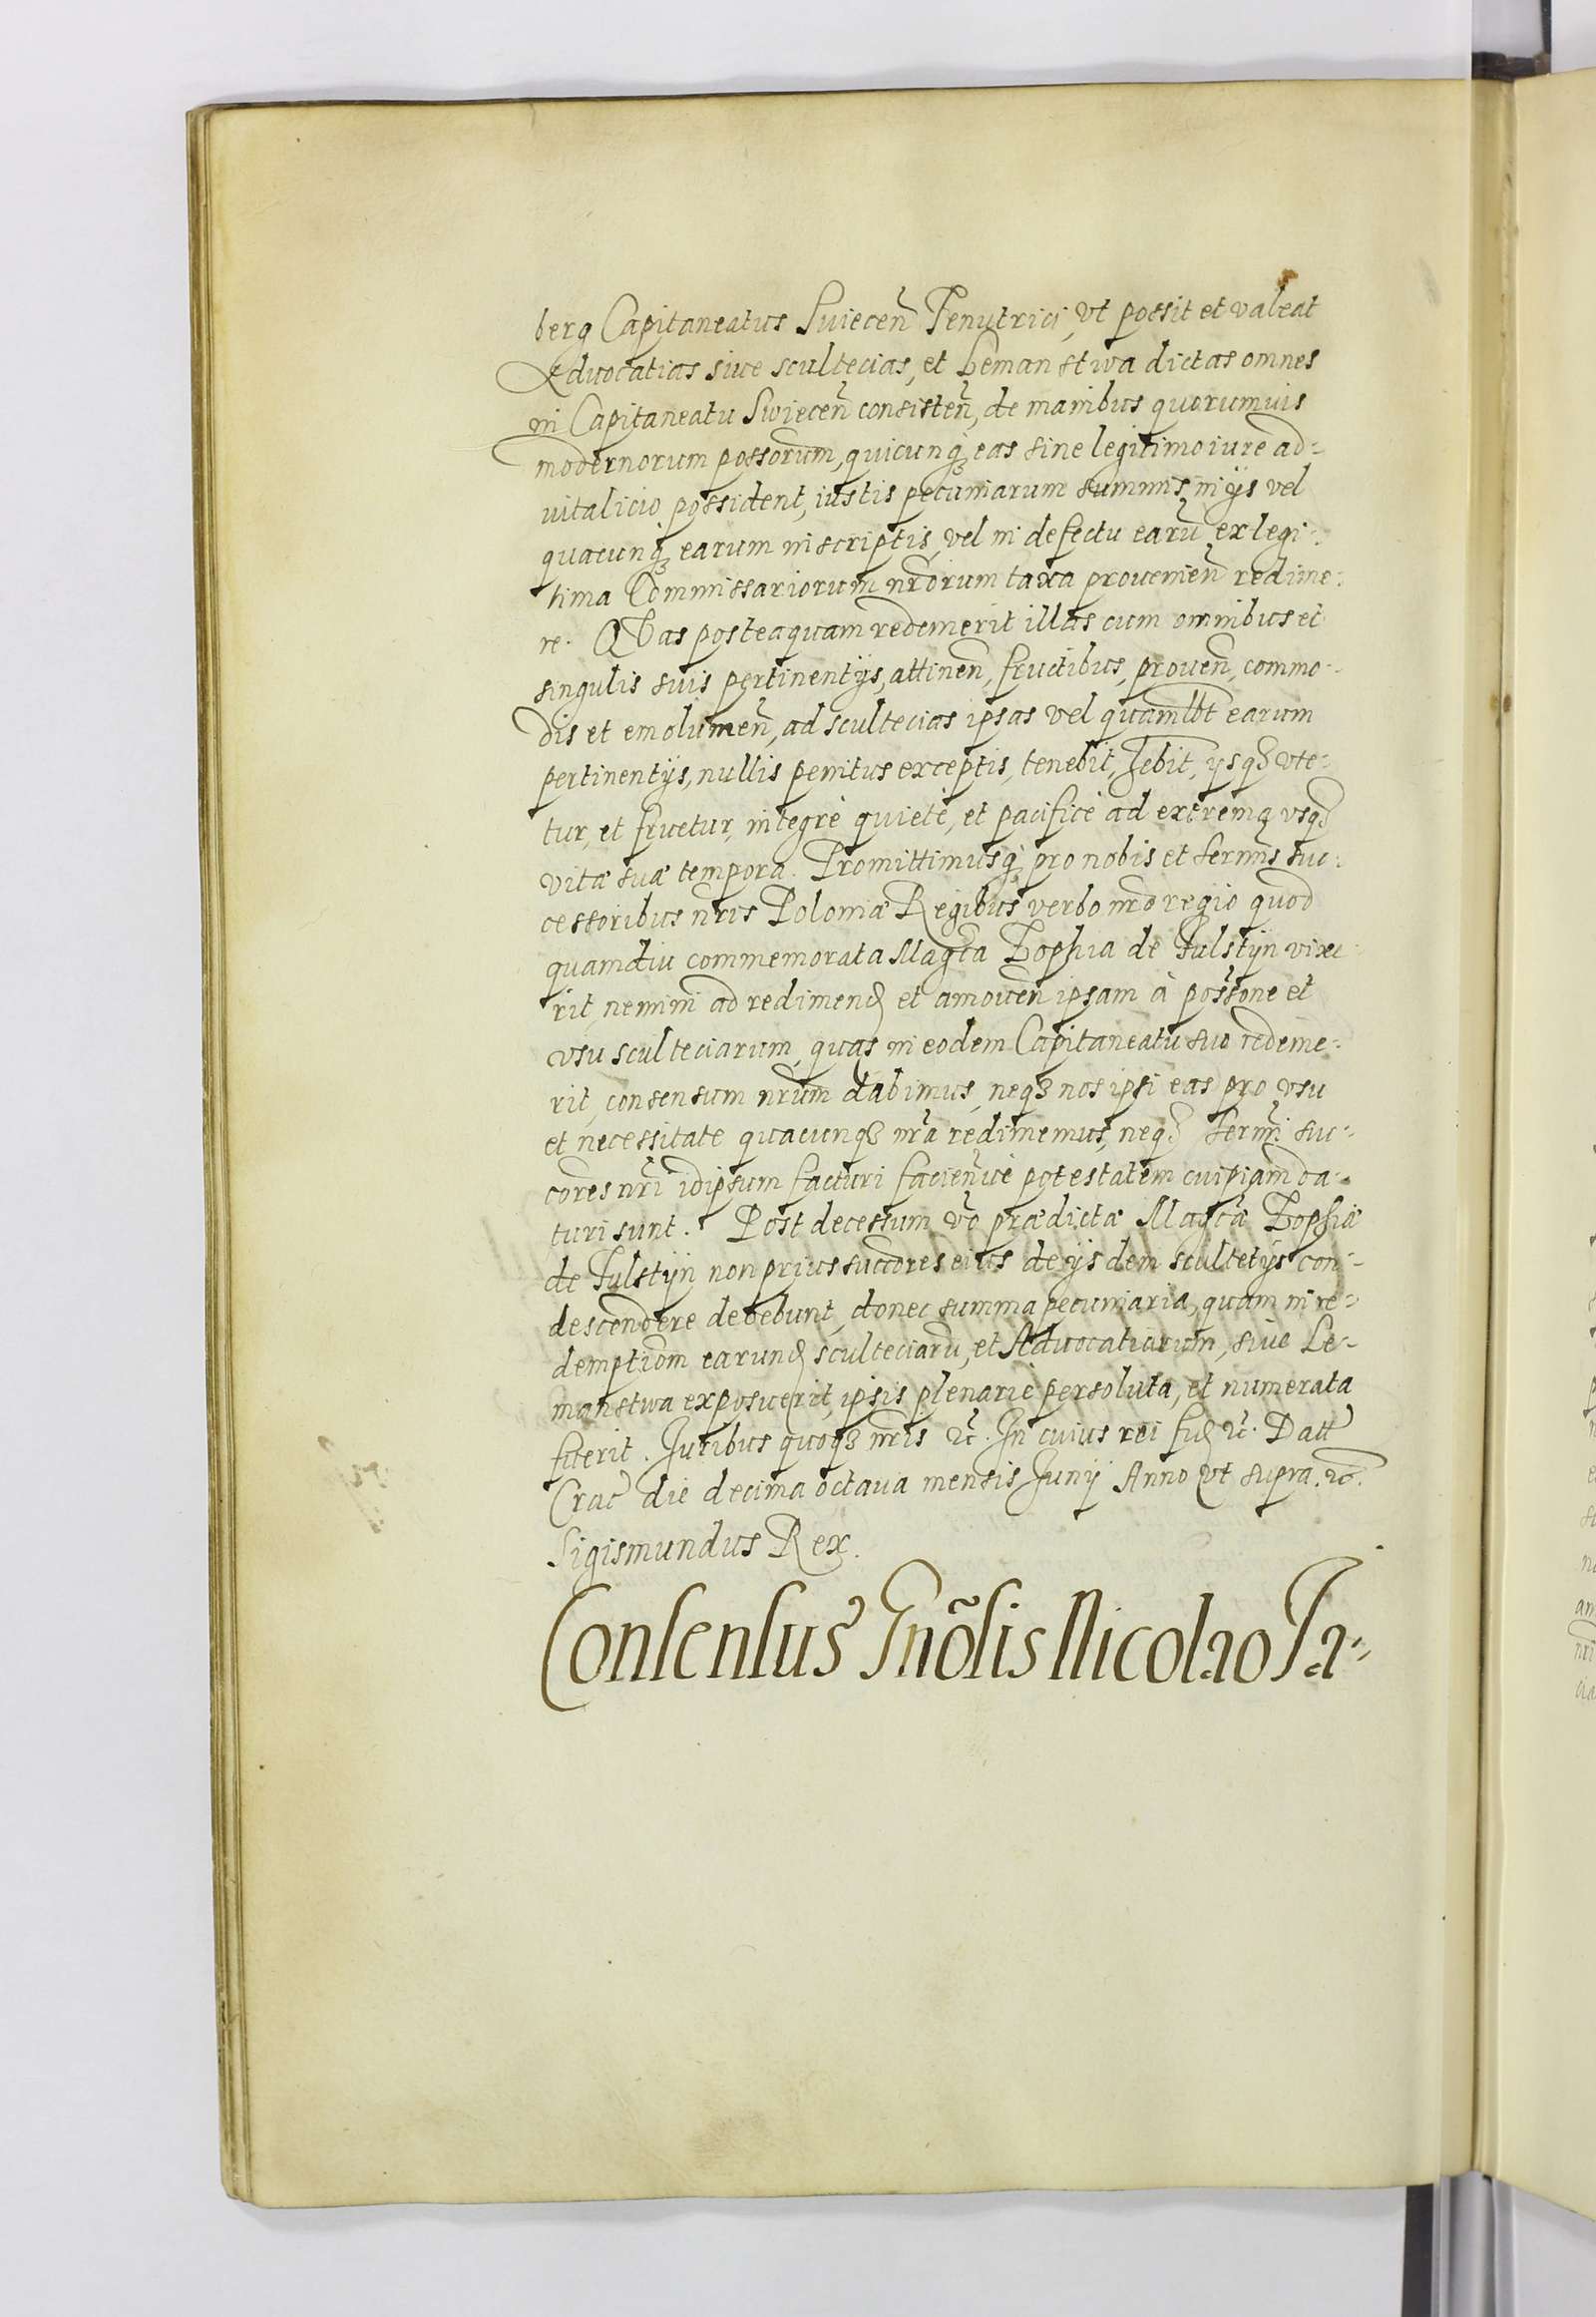 berg Capitaneatus Suiecen̄ Tenutrici, vt possit et valeat
Aduocatias siue scultecias, et Leman stwa dictas omnes
in Capitaneatu Swiecen̄ consisten̄, de manibus quorumuis
modernorum possorum, quicunq̨ eas sine legitimo iure ad-
uitalicio possident, iustis pecuniarum summis, in ijs vel
quacunq̨ earum inscriptis, vel in defectu earū ex legi-
tima Commissariorum nr̄orum taxa prouenien̄ redime-
re. Qvas posteaquam redemerit illas cum omnibus et
singulis suis pertinentijs, attinen̄, fructibus, prouen̄, commo-
dis et emolumen̄, ad scultecias ipsas vel quamlbt earum
pertinentijs, nullis penitus exceptis, tenebit, hēbit, ysqȝ vte-
tur, et fruetur, integrè quietè, et pacificè ad extrema vsqȝ
vitæ suæ tempora. Promittimusq̨ pro nobis et sermīs suc-
cessoribus nr̄is Poloniæ Regibus verbo nr̄o regio quod
quamdiu commemorata Magca Zophia de Fulstijn vixe-
rit, nemini ad redimend et amouen̄ ipsam à possone et
vsu sculteciarum, quas in eodem Capitaneatu suo redeme-
rit, consensum nr̄um dabimus, neqȝ nos ipsi eas pro vsu
et necessitate quacunqȝ nr̄a redimemus, neqȝ sermī suc-
cores nr̄i idipsum facturi facienue potestatem cuipiam da-
turi sunt. Post decessum vō prædictæ Magcæ Zophiæ
de Fulstijn non prius succores eius de ijsdem scultetijs con-
descendere debebunt, donec summa pecuniaria, quam in re-
demptiom earund sculteciarū, et Aduocatiarum, siue Le-
manstwa exposuerit, ipsis plenariè persoluta, et numerata
fuerit. Juribus quoqȝ nr̄is ec̄. In cuius rei fid ec̄. Datt
Crac̄ die decima octaua mensis Junij Anno vt supra. ec̄.
Sigismundus Rex.
Consensus Gnōsis Nicolao Ja-